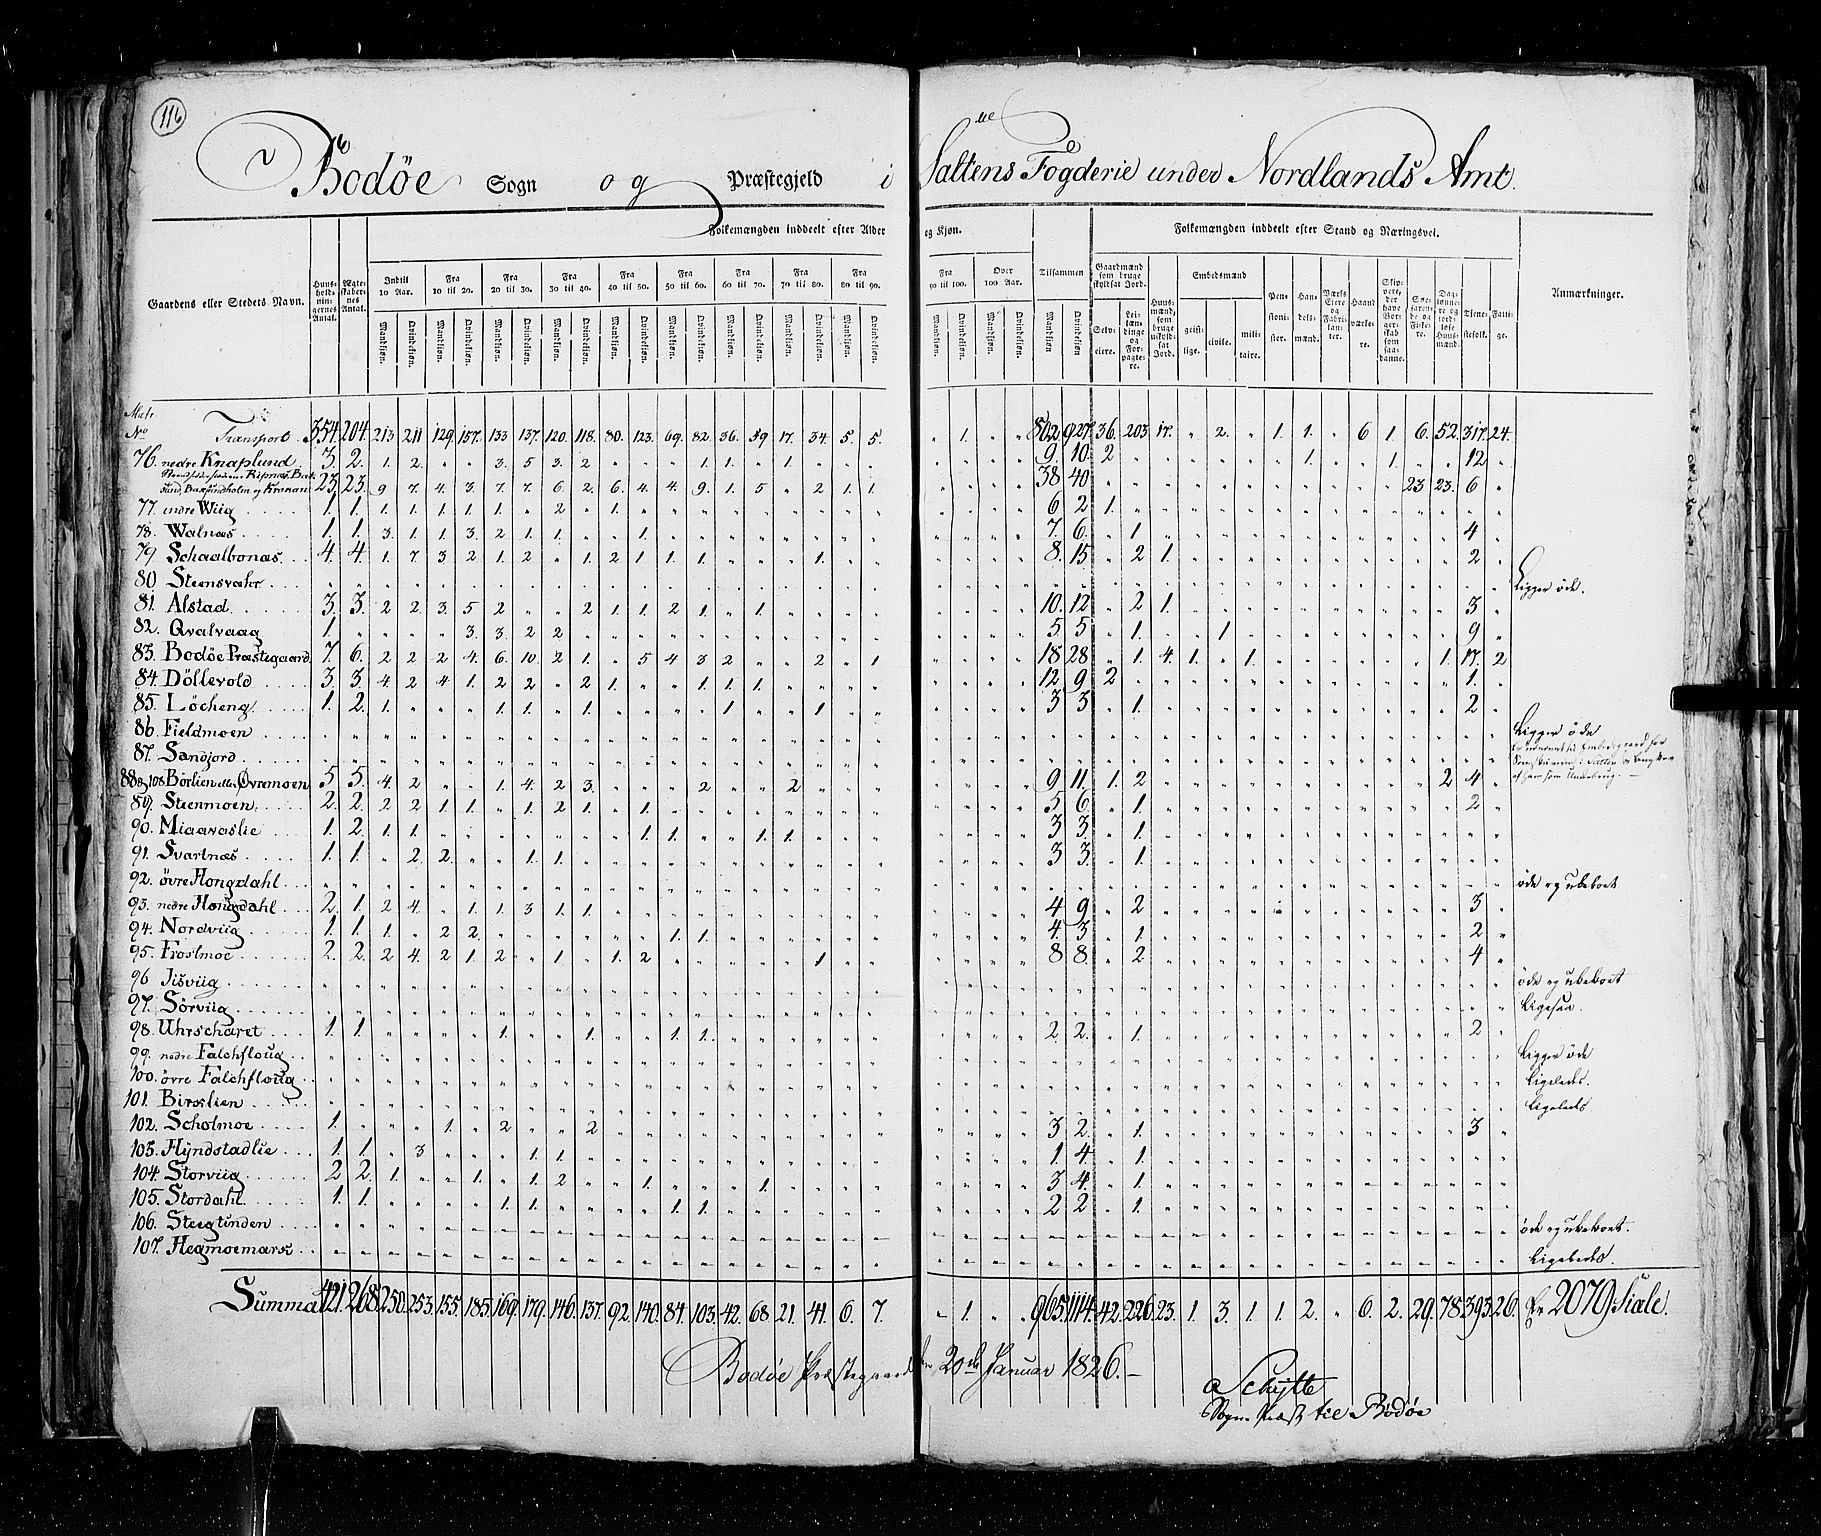 116
Bodöe Sogn og Præstegjeld i Saltens Fogderie under Nordlands Amt.
Folkemængden inddeelt efter Alder og Kjøn.
Folkemængden inddeelt efter Stand og Næringsvei.
Gaardens eller Stedets Navn.
Huusholdningernes Antal.
Ægteskabernes Antal.
Indtil 10 Aar.
Fra 10 til 20.
Fra 20 til 30.
Fra 30 til 40.
Fra 40 til 50.
Fra 50 til 60.
Fra 60 til 70.
Fra 70 til 80.
Fra 80 til 90.
Fra 90 til 100.
Over 100 Aar.
Tilsammen
Mandkjøn. Qvindekjøn.
Gaardmænd som bruge skyldsat Jord.
Selveiere.
Leilændinge og Forpagtere.
Huusmænd, som bruge uskyldsat Jord.
Embedsmænd
geistlige. civile. militaire.
Pensionister.
Handelsmænd.
Værks Eiere og Fabrikanter.
Haandværkere.
Skippere, der have Borgerskab som saadanne.
Søefarende og Fiskere.
Daglønnere og jordløse Huusmænd.
Tienestefolk.
Fattige.
Anmærkninger.
Matr. No
Transport 354. 204. 213 211 129. 157. 133 137. 120. 118. 80. 123. 69. 82. 36. 59 17. 34. 5. 5. " 1. " " 802 927 36. 203 17. " 2. " 1. 1. " 6 1. 6. 52. 317. 24.
76. nedre Knaplund 3. 2. 1. 2. " " 3. 5 3. 2 " " " 1. 1. " 1. 9. 10. 2 1. 1. 12
23. 23. 9 7. 4. 3. 7. 7. 6 2. 6. 4. 4. 9. 1. 5 " 2 1. 1. 38 40 23 23. 6
77. indre Wiig 1. 1. 1. 1. 1. 1. 1. " 2 " 1. 6 2 1.
78. Walnæs 1. 1. 3. 1. 1. 3. 2 1. 1. " " 1. 7 6. " 1 4
79 Schaalbonæs 4. 4 1. 7 3 2 1. 2 " 1. 2 1. 1. 1. 1. 8. 15 " 2 1. 2
80 Steensvahr Ligger øde.
81. Alstad 3. 3. 2 2. 3. 5 2 " " 2 1. 1. 2 1. " 1. 10. 12 " 2 1. 3
82. Qvalvaag 1. 3. 3. 2 2 5 5 " 1. 1 9
83. Bodöe Præstegaard 7. 6. 2 2 2 4. 6. 10. 2 1. " 5 4 3 2 " " 2 " 1 18 28 " 1. 4. 1. " 1. 1. 17. 2
84. Döllevold 3 3. 4. 2 4 1. 2 2 " 2 1. " " 1. 1. 1. 12 9 2 1.
85. Löcheng 1. 2. 1. 1. 1. 1. 1 1 3 3. " 1. 2
86. Fieldmoen Ligger øde
87. Sandjord
88 og 108 Börlien eller Øvremoen 5 5. 4 2 " " 1. 4. 2 3. 2 2 9 11. 1. 2 2 4
89. Steenmoen 2. 2. 2 2 1 1. " 1. 2 1. " 1. 5 6 " 1. 2
90. Miaavaslie 1. 2. 1. 1. 1. 1. 1. 1. 3 3. " 1.
91. Svartnæs 1. 1. " 2. 2. " " 1. 1. 3 3. " 1.
92. övre Hongdahl øde og ubeboet
93. nedre Hongdahl 2. 1. 2 4. " 1. 1. 3 1. 1. 4 9 " 2 3
94. Nordviig 1. 1. 1. " 2 2. 1. 1. 4. 3 " 1. 2
95. Frostmoe 2. 2. 2 4. 2 1. 2 " 1 " 1. 2 1 8 8. " 2 4
96 Jisviig øde og ubeboet
97. Sörviig Ligesaa.
98. Uhrscharet 1. 1. 1. 1. 1. 1. 2 2. " 1. 2
99. nedre Falchfloug Ligger øde
100. övre Falchfloug Ligeledes.
101 Birsslien Ligeledes
102. Scholmoe 1. 1. 2 2 3 2. " 1. 3
103. Hyndstadlie 1. 1 " 3 1. 1. 1. 4 " 1.
104. Storviig 2 2. 1. " " 1. " 1. 2 " " 1. 1. 3 4. " 1
105. Stordahl 1. 1. 1. 1. 1. 1. 2 2 " 1.
106. Steegtinden øde og ubeboet.
107. Hegmoemark Ligeledes.
Summa 421. 268. 250. 253. 155. 185. 169. 179. 146. 137. 92. 140. 84. 103. 42. 68 21. 41. 6. 7. " 1. " " 965. 1114. 42. 226. 23. 1. 3. 1. 1. 2. " 6 2. 29. 78. 393. 26. Er 2079 Siæle.
Bodøe Præstegaard den 20de Januar 1826.
Schytte
Sogne Præst til Bodøe